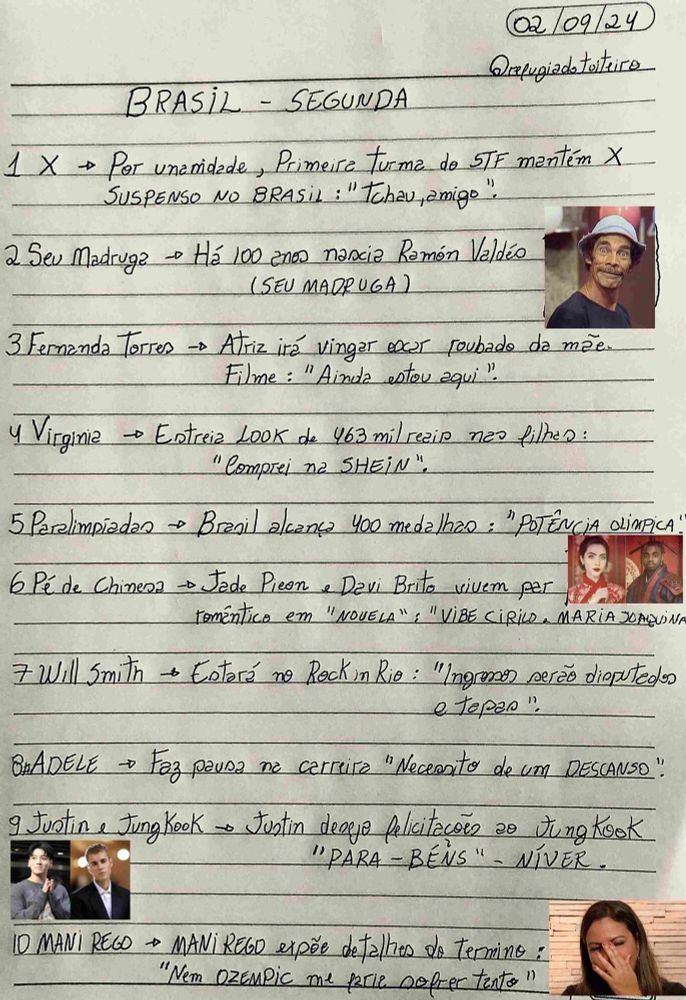 02/09/24
@refugiadotoiteiro
BRASIL - SEGUNDA
1 X → Por unanidade, Primeira turma do STF mantém X
SUSPENSO NO BRASIL : "Tchau, amigo".
2 Seu Madruga → Há 100 anos nascia Ramón Valdés
(SEU MADRUGA)
3 Fernanda Torres → Atriz irá vingar oscar roubado da mãe.
Filme : "Ainda estou aqui".
4 Virginia → Estreia LOOK de 463 mil reais nas filhas:
"Comprei na SHEIN".
5 Paralimpíadas → Brasil alcança 400 medalhas : "POTÊNCIA OLIMPICA".
6 Pé de Chinesa → Jade Picon e Davi Brito vivem par
romântico em "NOVELA" : "VIBE CIRILO e MARIA JOAQUINA
7 Will Smith → Estará no Rock in Rio : "Ingressos serão disputados
a tapas".
8 ADELE → Faz pausa na carreira "Necessito de um DESCANSO".
9 Justin e JungKook → Justin deseja felicitações ao JungKook
"PARA - BÉNS" - NÍVER.
10 MANI REGO → MANI REGO expõe detalhes do termino :
"Nem OZEMPIC me faria sofrer tanto"